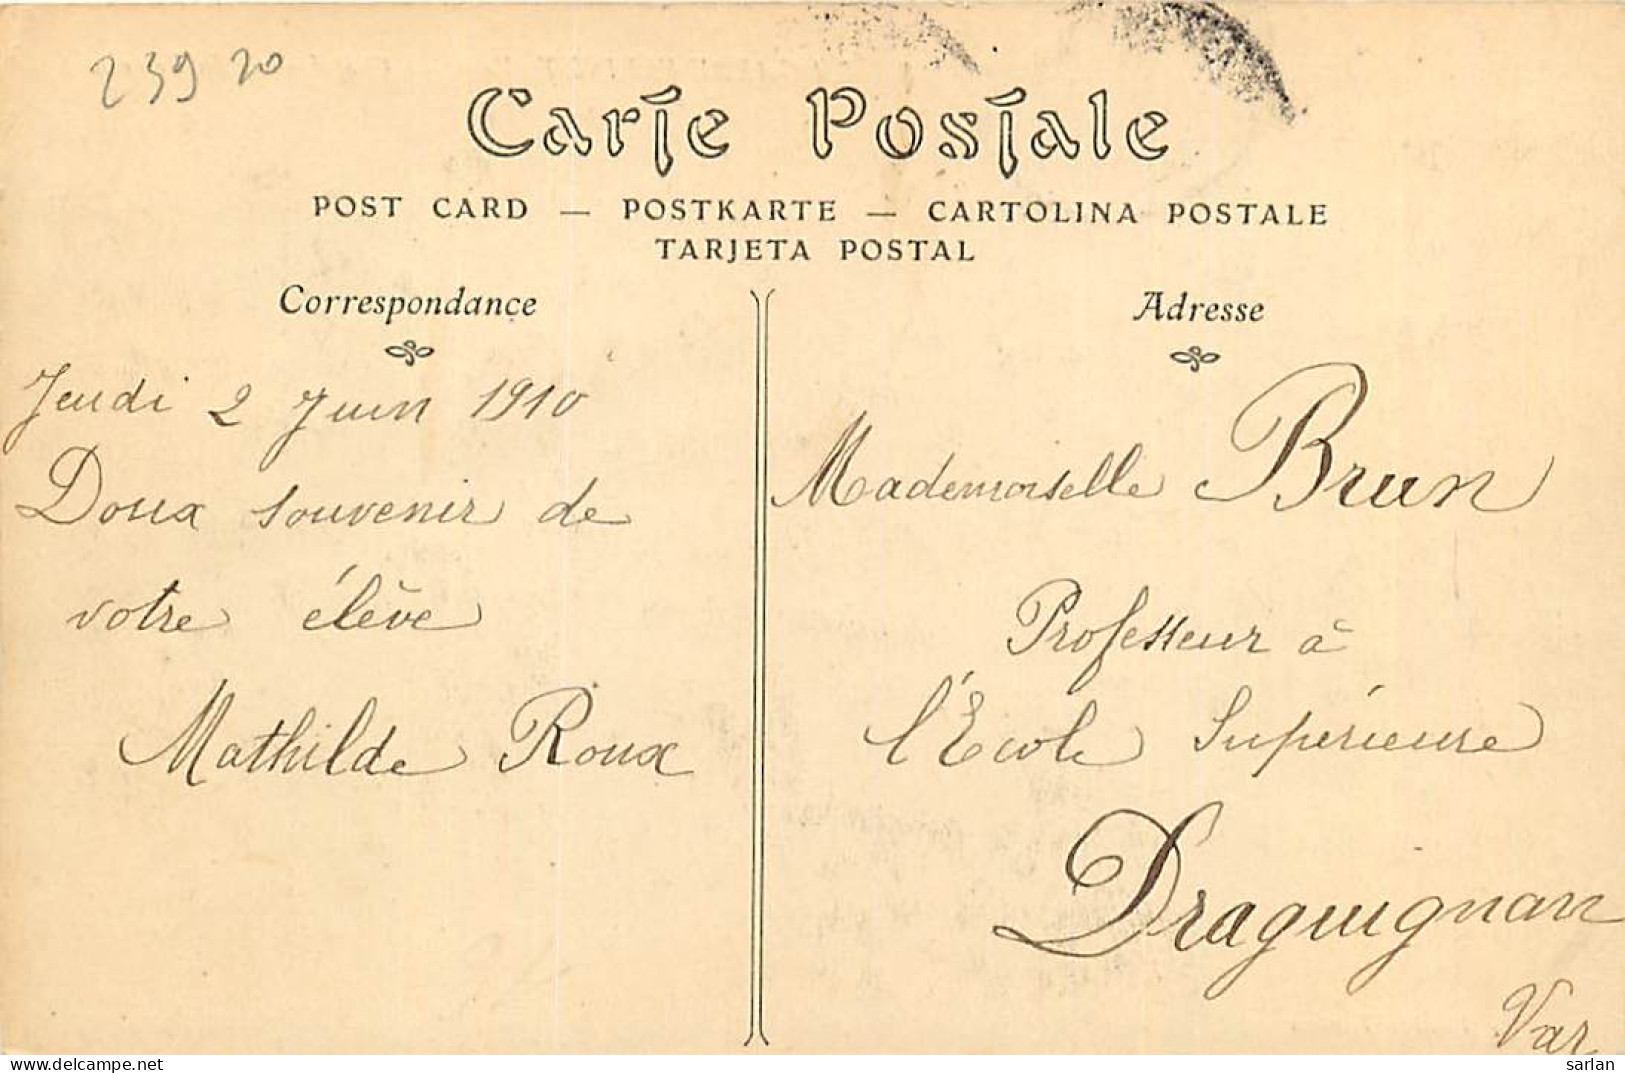 239 20
Carte Postale
POST CARD — POSTKARTE — CARTOLINA POSTALE
TARJETA POSTAL
Correspondance
Jeudi 2 Juin 1910
Doux souvenir de
votre élève
Mathilde Roux
Adresse
Mademoiselle Brun
Professeur à
l'École Supérieure
Draguignan
Var
delcampe.net
sarlan